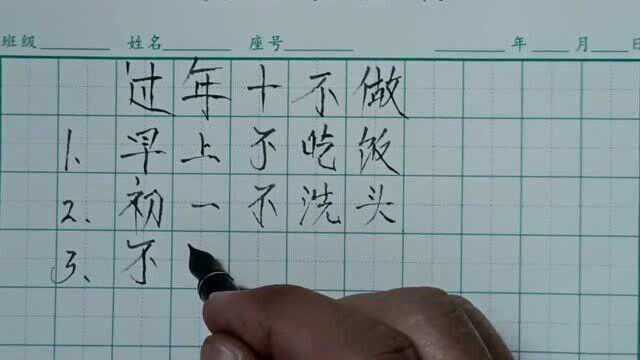 班级 姓名 座号 年 月 日
过年十不做
1、早上不吃饭
2、初一不洗头
3、不